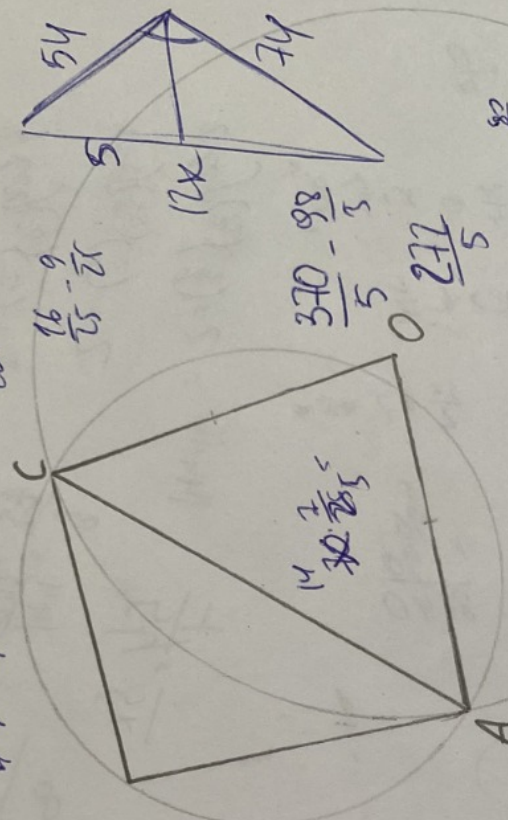 5y
7y
5
12x
16/25 - 9/25
370/5 - 98/5
272/5
C
O
14
7
5
A